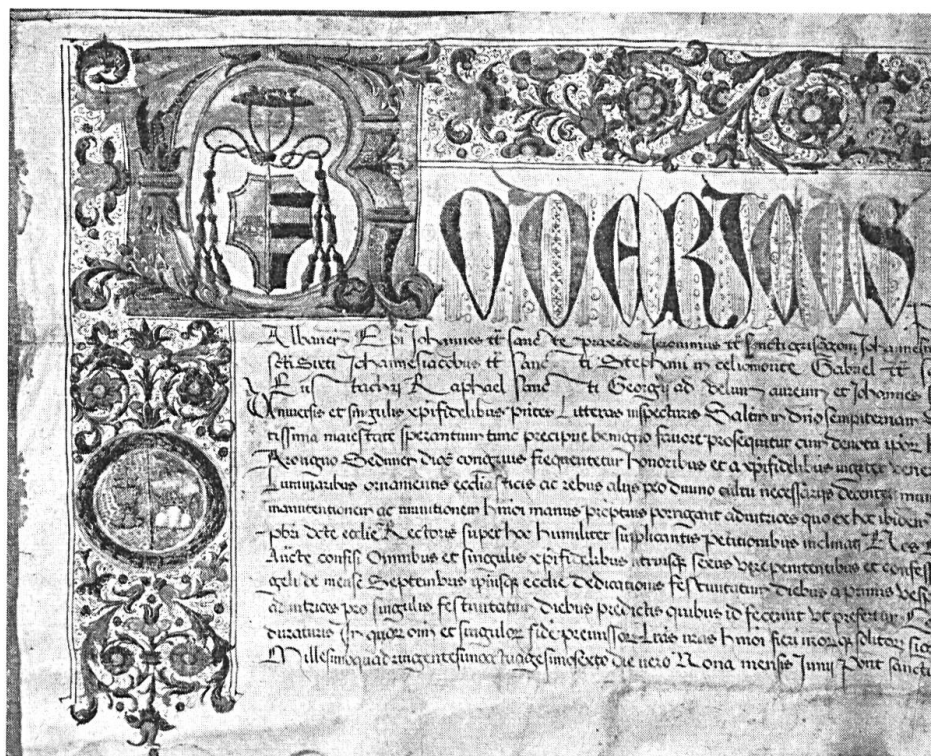 RODERICUS
Albanen Epi Johannes tt sancte praxedis Jeronimus tt sancti grisogoni Johannes
scti Sixti Johannesiacobus tt Sancti Stephani in celiomonte Gabriel tt
Eustachii Raphael Sancti Georgii ad velum aureum et Johannes
Universis et singulis xpifidelibus pntes Litteras inspecturis Saltm in dno sempiternam
tissima maiestate sperantium tunc precipue benigno favore prosequitur cum devota ipor
Arongno Sedunen dioc congruis frequentetur honoribus et a xpifidelibus iugiter vene
Luminaribus ornamentis ecclesiasticis ac rebus aliis pro divino cultu necessariis decenter mun
manutentionem ac munitionem hmoi manus promptius porrigant adiutrices quo ex hoc ibidem
pbri dcte ecclie Rectoris super hoc humiliter supplicantis petitionibus inclinati
Aucte confisi Omnibus et singulis xpifidelibus utriusq sexus vere penitentibus et confess
geli de mense Septembris ipiusq ecclie Dedicationis festivitatum diebus a primis vesp
adiutrices pro singulis festivitatum diebus predictis quibus id fecerint ut prefertur
duraturis In quor omi et singulor fidem premissor Lras nras hmoi fieri nrorq solitor sig
Millesimoquadringentesimooctuagesimosexto die vero Nona mensis Junii Pont sancti